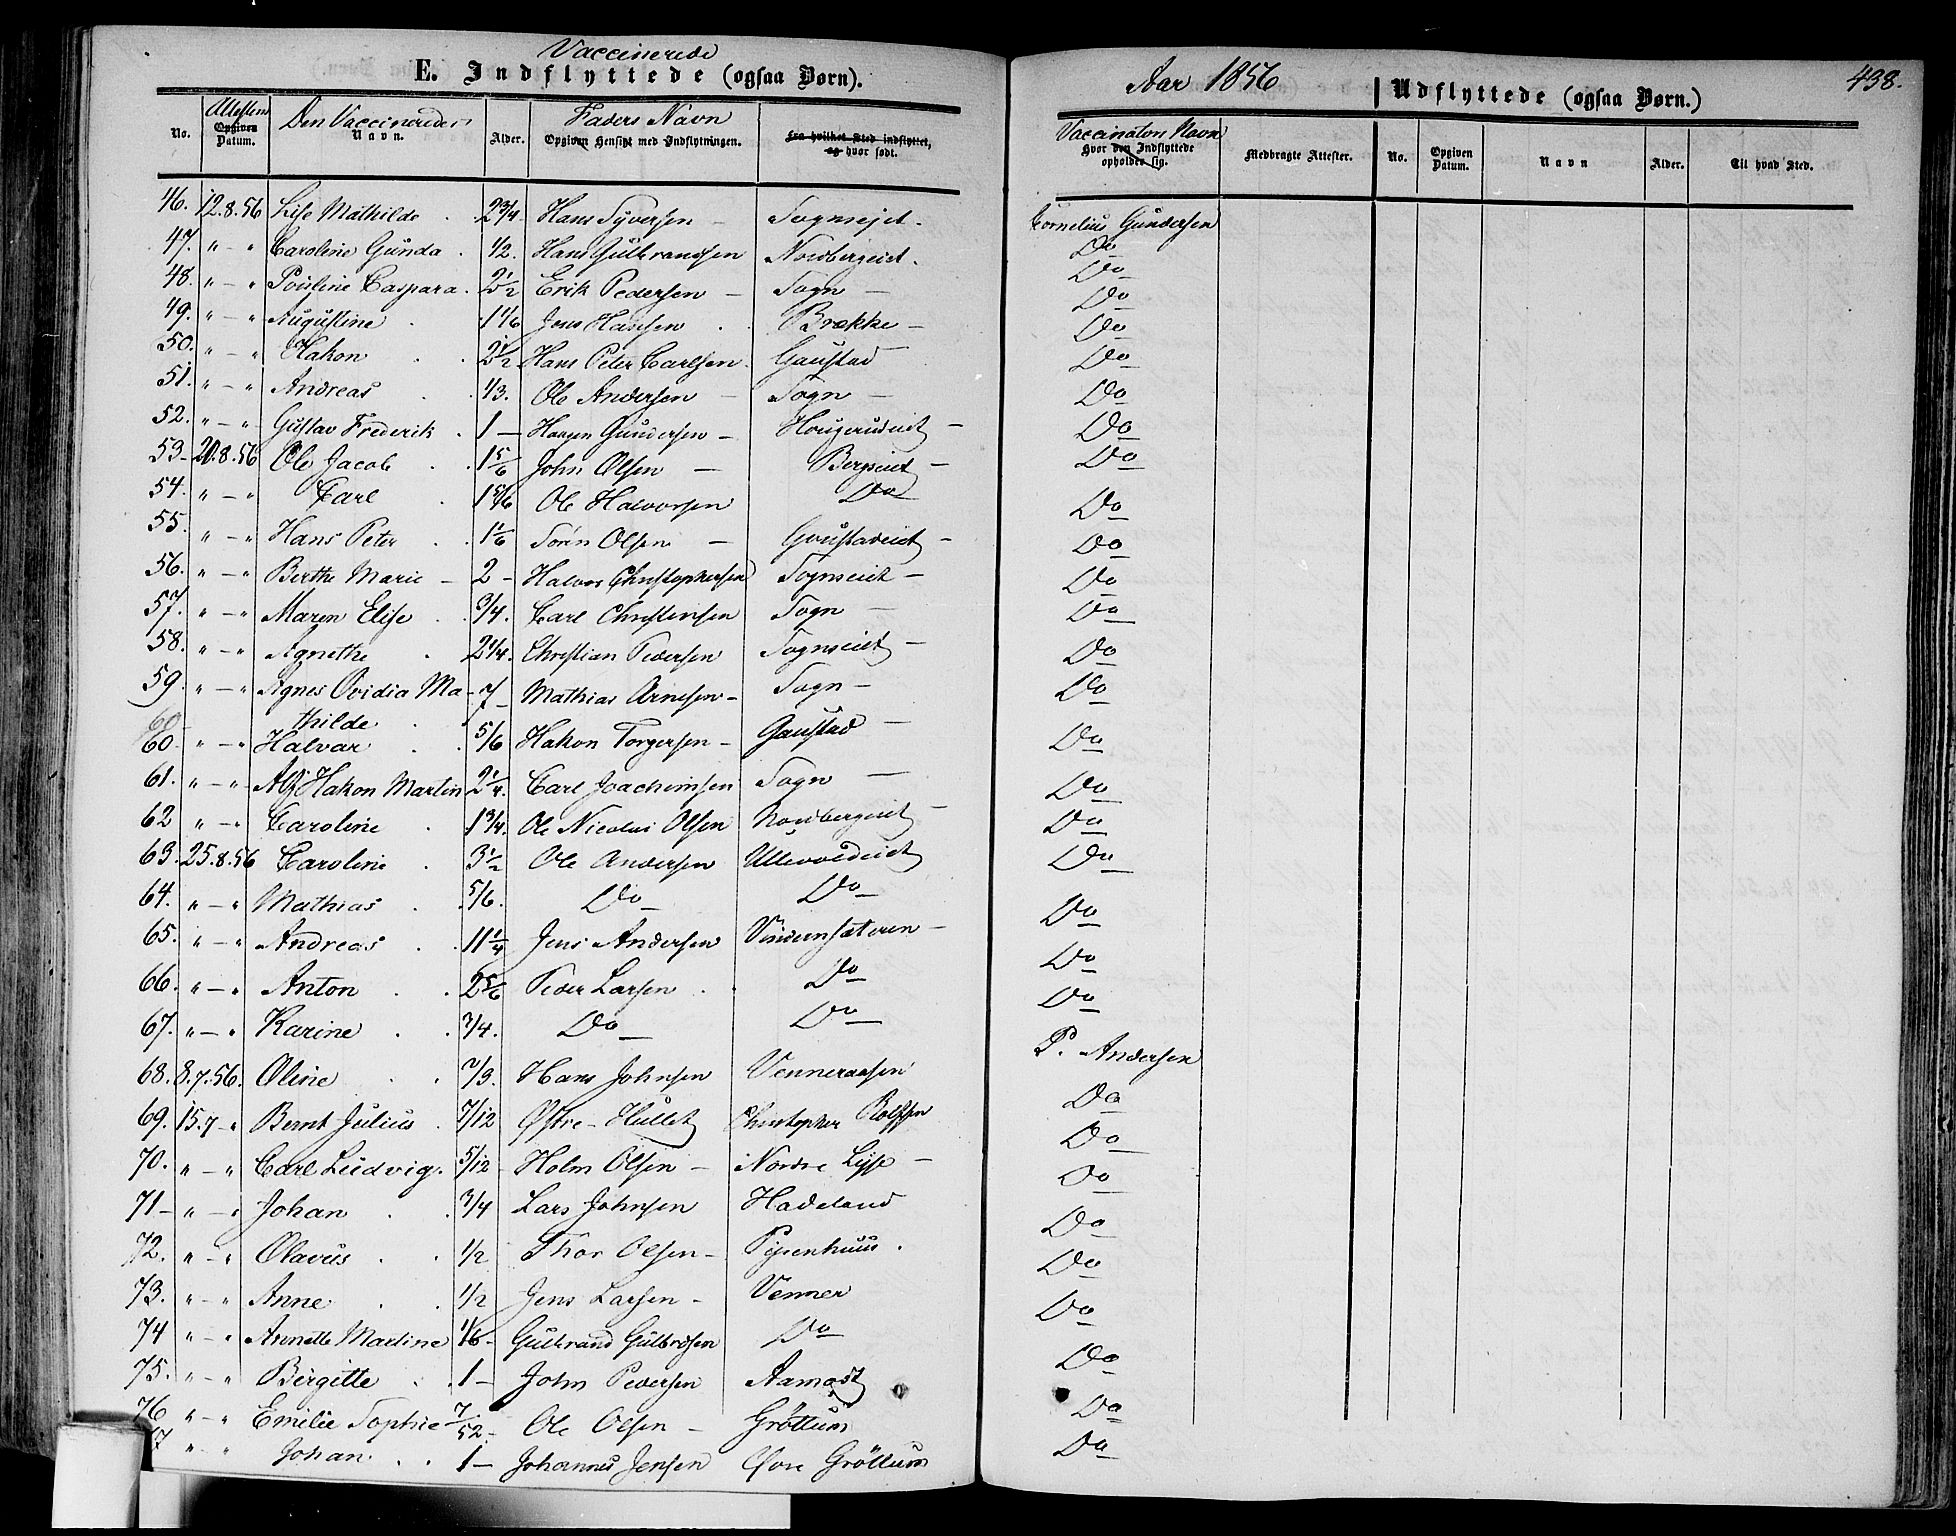 Vaccinerede
E. Indflyttede (ogsaa Børn).
Aar 1856
Udflyttede (ogsaa Børn.)
438.
No. Attestens Opgiven Datum. Den Vaccineredes Navn. Alder. Faders Navn Opgiven Hensigt med Indflytningen. fra hvilket Sted indflyttet, og hvor født. Vaccinatørs Navn Hvor den Indflyttede opholder sig. Medbragte Attester. No. Opgiven Datum. Navn Alder. Til hvad Sted.
46. 12.8.56 Lise Mathilde 2 3/4 Hans Syversen — Sognsejet. Cornelius Gundersen
47. " — " Caroline Gunda 1/2. Hans Gulbrandsen Nordbergeiet. Do
48. " — " Pouline Caspara. 2 1/2 Erik Pedersen — Sogn — Do
49. " — " Augustine 1 1/6 Jens Hansen Brække — Do
50. " — " Hakon 2 1/2 Hans Peter Carlsen. Gaustad Do
51. " — " Andreas 1/3. Ole Andersen — Sogn — Do
52. " — " Gustav Frederik 1 — Haagen Gundersen — Hougerudeiet — Do
53 — 20.8.56 Ole Jacob 1 5/6 John Olsen — Bergseiet — Do
54. " — " Carl 1 5/6 Ole Halvorsen Do Do
55. " — " Hans Peter 1 1/6 Sørn Olsen — Goustadeiet — Do
56. " — " Berthe Marie — 2 — Halvor Christophersen Sognseiet — Do
57. " — " Maren Elise 3/4. Carl Christensen Sogn — Do
58. " — " Agnethe 2 1/4. Christian Pedersen Sognseiet — Do
59. " — " Agnes Ovidia Ma- 7 — Mathias Arnesen — Sogn — Do
60 thilde
60. " — " Halvar 5/6 Hakon Torgersen — Gaustad — Do
61. " — " Alf Hakon Martin 2 1/4. Carl Joachimsen Sogn — Do
62 " — " Caroline 1 3/4. Ole Nicolai Olsen Nordbergeiet — Do
63. 25.8.56 Caroline 3 1/2 Ole Andersen Ullevoldeiet Do
64. " — " Mathias 5/6. Do Do Do
65. " — " Andreas 11 1/4 Jens Andersen Vindernsæteren — Do
66. " — " Anton 2 5/6 Peder Larsen Do Do
67. " — " Karine 3/4. Do Do Do
68. 8.7.56. Oline 2/3. Hans Johnsen Venneraasen P. Andersen
69. 15.7 — " Bernt Julius 7/12 Østre — Hullet Christopher Rolfsen Do
70. " — " Carl Ludvig. 5/12 Holm Olsen — Nordre Lyse — Do
71 — " — " Johan 3/4 Lars Johnsen Hadeland Do
72. " — " Olavus 1/2 Thor Olsen — Pipenhuus. Do
73. " — " Anne 1/2 Jens Larsen — Venner Do
74 " — " Annette Martine 1/6 — Gulbrand Gulbrdsen Do Do
75. " — " Birgitte 1 — John Pedersen Aamodt Do
76 " — " Emilie Sophie 7/52. Ole Olsen — Grøttum Do
7 " " Johan 1 — Johannes Jensen Øvre Grøttum Do